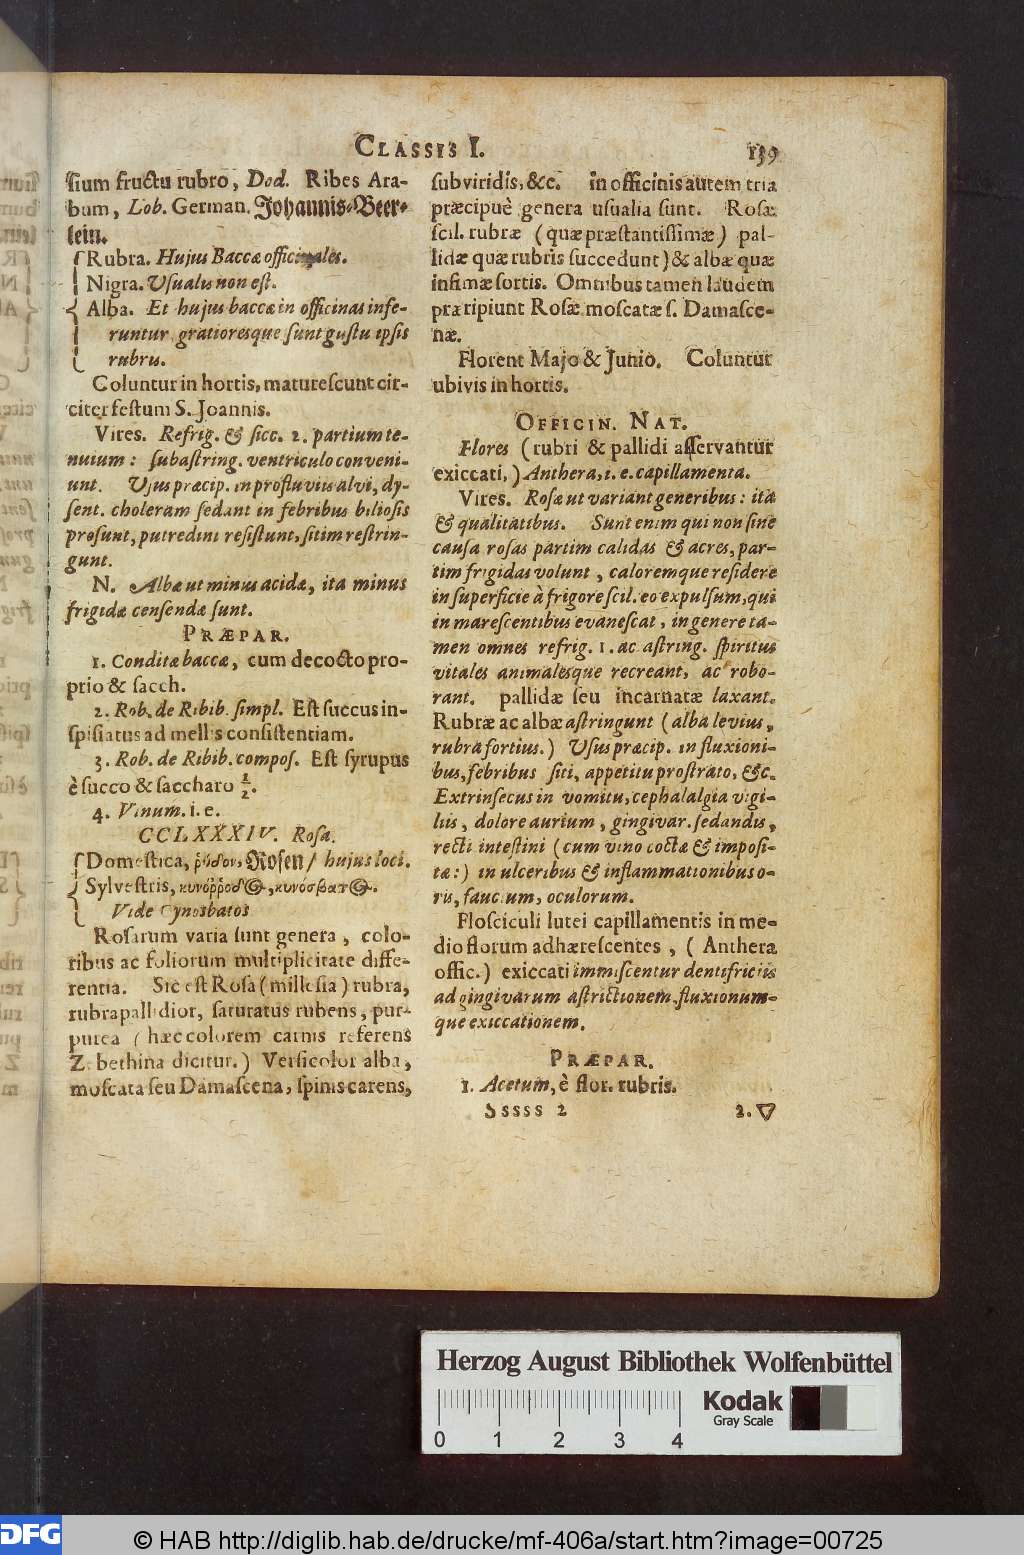 CLASSIS I. 139
ſium fructu rubro, Dod. Ribes Ara-
bum, Lob. German. Johannis-Beer-
lein.
Rubra. Hujus Baccæ officinales.
Nigra. Uſualis non eſt.
Alba. Et hujus baccæ in officinas infe-
runtur, gratioresque ſunt guſtu ipſis
rubris.
Coluntur in hortis, matureſcunt cir-
citer feſtum S. Joannis.
Vires. Refrig. & ſicc. 2. partium te-
nuium: ſubaſtring. ventriculo conveni-
unt. Uſus præcip. in profluviis alvi, dy-
ſent. choleram ſedant in febribus bilioſis
proſunt, putredini reſiſtunt, ſitim reſtrin-
gunt.
N. Albæ ut minus acidæ, ita minus
frigidæ cenſendæ ſunt.
PRÆPAR.
1. Conditæ baccæ, cum decocto pro-
prio & ſacch.
2. Rob. de Ribib. ſimpl. Eſt ſuccus in-
ſpiſſatus ad mellis conſiſtentiam.
3. Rob. de Ribib. compoſ. Eſt ſyrupus
è ſucco & ſaccharo ½.
4. Vinum. i. e.
CCLXXXIV. Roſa.
Domeſtica, ῥόδον, Roſen / hujus loci.
Sylveſtris, κυνόρροδος, κυνόσβατος.
Vide Cynosbatos
Roſarum varia ſunt genera, colo-
ribus ac foliorum multiplicitate diffe-
rentia. Sic eſt Roſa (mileſia) rubra,
rubra pallidior, ſaturatus rubens, pur-
purea (hæc colorem carnis referens
Z. bethina dicitur.) Verſicolor alba,
moſcata ſeu Damaſcena, ſpinis carens,
ſubviridis, &c. in officinis autem tria
præcipuè genera uſualia ſunt. Roſæ
ſcil. rubræ (quæ præſtantiſſimæ) pal-
lidæ quæ rubris ſuccedunt) & albæ quæ
infimæ ſortis. Omnibus tamen laudem
præripiunt Roſæ moſcatæ ſ. Damaſce-
næ.
Florent Majo & Junio. Coluntur
ubivis in hortis.
OFFICIN. NAT.
Flores (rubri & pallidi aſſervantur
exiccati,) Anthera, i. e. capillamenta.
Vires. Roſæ ut variant generibus: ita
& qualitatibus. Sunt enim qui non ſine
cauſa roſas partim calidas & acres, par-
tim frigidas volunt, caloremque reſidere
in ſuperficie à frigore ſcil. eo expulſum, qui
in mareſcentibus evaneſcat, in genere ta-
men omnes refrig. 1. ac aſtring. ſpiritus
vitales animalesque recreant, ac robo-
rant. pallidæ ſeu incarnatæ laxant.
Rubræ ac albæ aſtringunt (alba levius,
rubra fortius.) Uſus præcip. in fluxioni-
bus, febribus ſiti, appetitu proſtrato, &c.
Extrinſecus in vomitu, cephalalgia vigi-
liis, dolore aurium, gingivar. ſedandis,
recti inteſtini (cum vino coctæ & impoſi-
tæ:) in ulceribus & inflammationibus o-
ris, faucium, oculorum.
Floſciculi lutei capillamentis in me-
dio florum adhæreſcentes, (Anthera
offic.) exiccati immiſcentur dentifriciis
ad gingivarum aſtrictionem, fluxionum-
que exiccationem.
PRÆPAR.
1. Acetum, è flor. rubris.
Sssss 2 2. ▽
Herzog August Bibliothek Wolfenbüttel
Kodak
Gray Scale
0 1 2 3 4
DFG © HAB http://diglib.hab.de/drucke/mf-406a/start.htm?image=00725